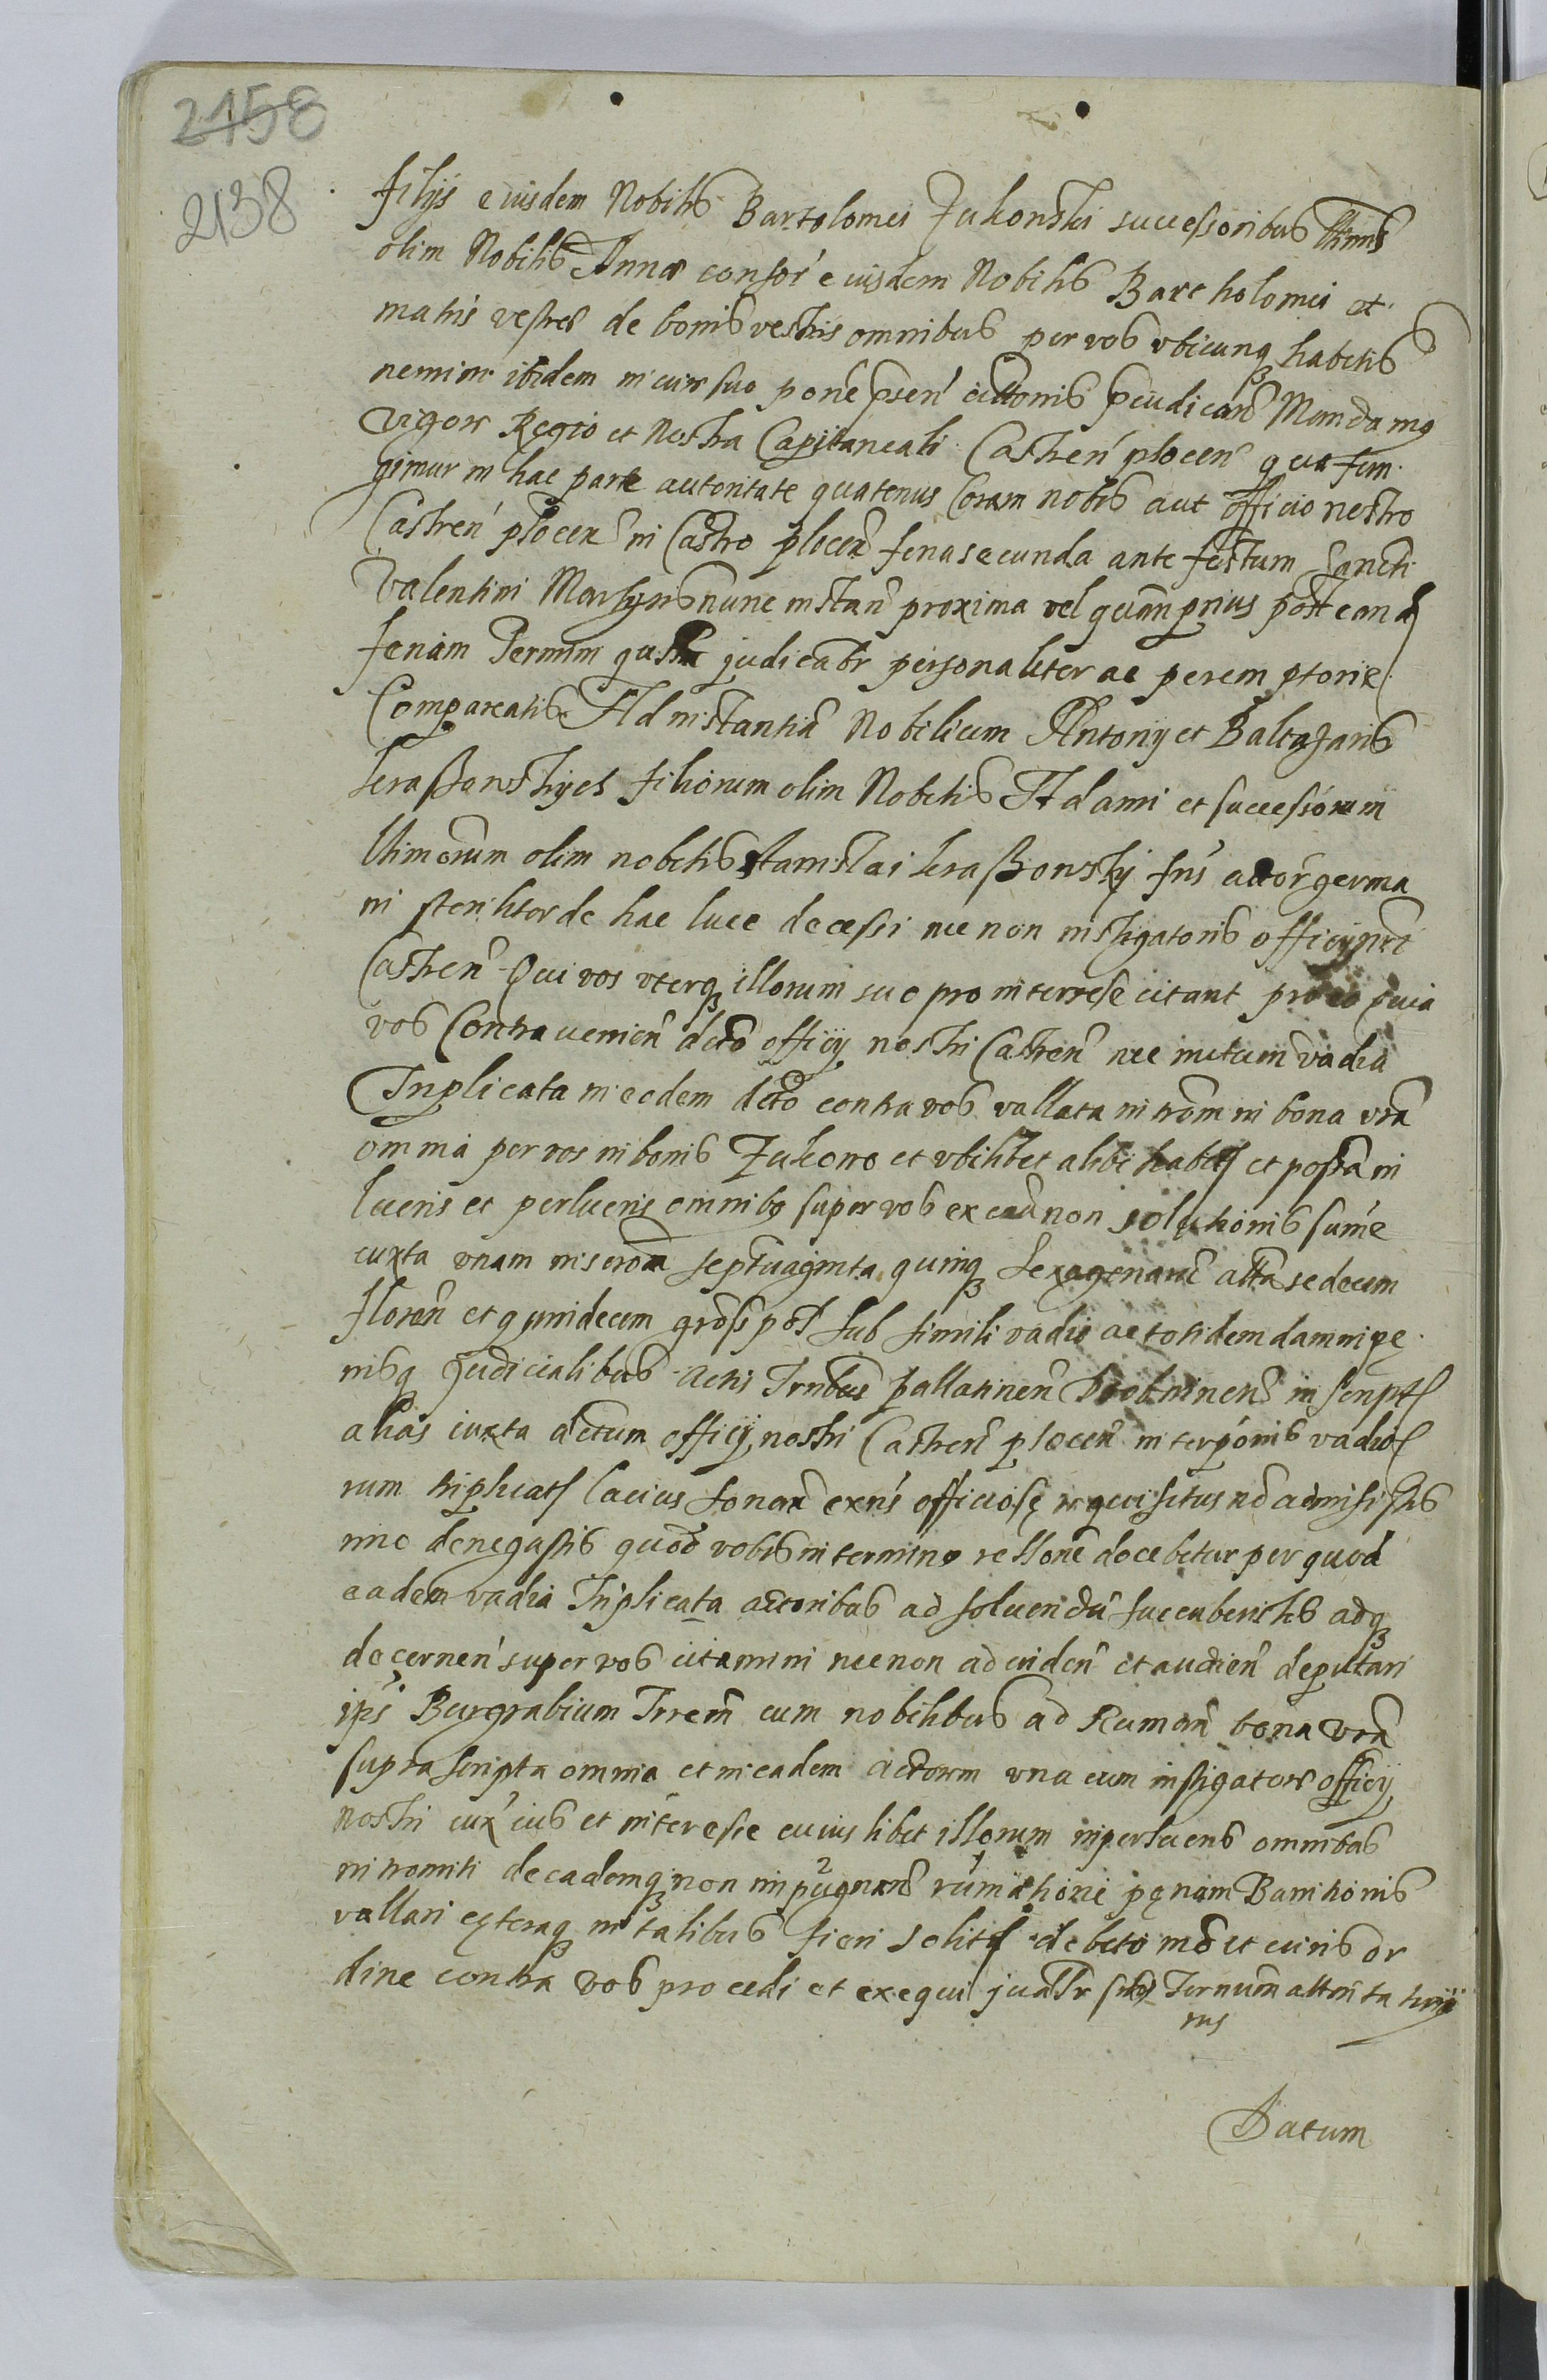 2158
2138
filijs eiusdem Nobilis Bartolomei Zukowski successoribus
olim Nobilis Annæ consor eiusdem Nobilis Bartholomei et
matris vestræ de bonis vestris omnibus per vos vbicunq habetis
nemini ibidem in cursu suo pone psen cittonis pᷓiudicañ Mandamq
vigore Regio et Nostra Capitaneali Castren plocen qua fun
gimur in hac parte autoritate quatenus Coram nobis aut officio nostro
Castren plocen in Castro plocen feria secunda ante festum Sancti
Valentini Martyris nunc instan proxima vel quam prius post eand
feriam Termini judicabr personaliter ac peremptorie
Compareatis Ad instantia Nobilium Antonij et Baltazaris
filiorum olim Nobilis Adami et successorum
olim nobilis Stanislai fris actor germa
ni steriliter de hac luce decessi nec non instigatoris officij nri
Castren Qui vos vterq illorum suo pro interesse citant pro eo quia
vos Contravenien dcto officij nostri Castren nec metuen vadia
Triplicata in eodem dcto contra vos vallata introm in bona vra
omnia per vos in bonis Zukowo et vbilibet alibi habit et possa in
lucris et perlucris omnibq super vos ex cau non solutionis sume
iuxta vnam inscrom septuaginta quinq sexagenaru alta sedecim
floren et quindecim gross pol sub simili vadio ac totidem damni pę
nisq Judicialibus Actis Trnbus pallatinen inscript
alias iuxta dctum officij nostri Castren plocen interponis vadio
rum triplicat lacius sonan exns officiose requisitus no admisistis
imo denegastis quod vobis in termino rellone docebitur per quod
eadem vadia Triplicata actoribus ad soluendu succubuistis adq
decernen super vos citamini nec non ad viden et audien deputari
ips Burgrabium Trrem cum nobilibus ad Ruman bona vra
supra scripta omnia et in eadem actorm vna cum instigatore officij
nostri iux ius et interesse cuiuslibet illorum in perlucris omnibus
intromitti de eademq non impugnan rumatione pęnam Banitionis
vallari cęteraq in talibus fieri solit debito mo et iuris or
dine contra vos procedi et exequi
Datum